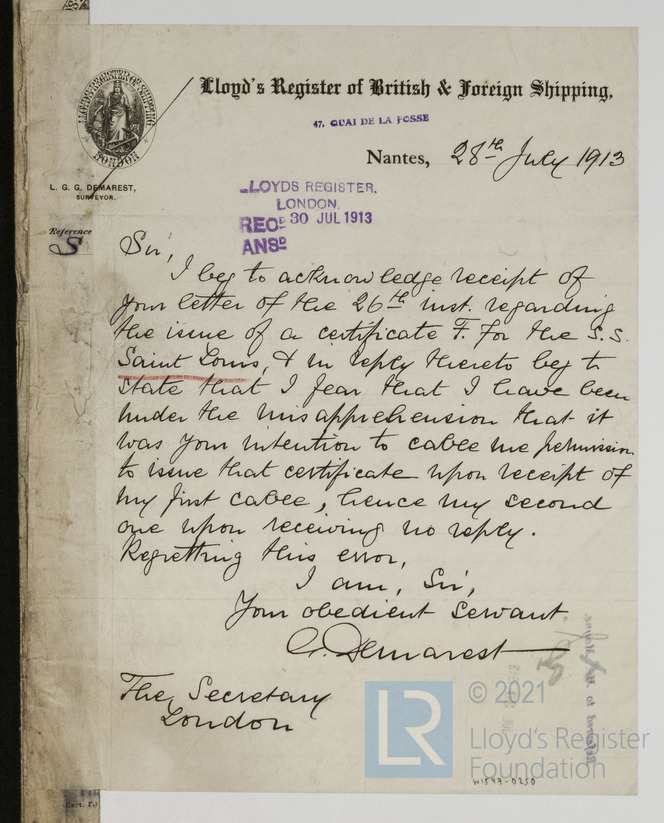 Lloyd's Register of British & Foreign Shipping,
47, QUAI DE LA FOSSE
Nantes, 28th July 1913
LLOYD'S REGISTER OF BRITISH & FOREIGN SHIPPING
LONDON
L. G. G. DEMAREST,
SURVEYOR.
LLOYDS REGISTER,
LONDON,
REOD 30 JUL 1913
ANSD
Reference
S
Sir,
I beg to acknowledge receipt of
your letter of the 26th inst. regarding
the issue of a certificate F. for the S.S.
Saint Louis, & in reply thereto beg to
state that I fear that I have been
under the misapprehension that it
was your intention to cable me permission
to issue that certificate upon receipt of
my first cable, hence my second
one upon receiving no reply.
Regretting this error,
I am, Sir,
Your obedient servant.
G Demarest
The Secretary
London
LR
© 2021
Lloyd's Register
Foundation
W1597-0250